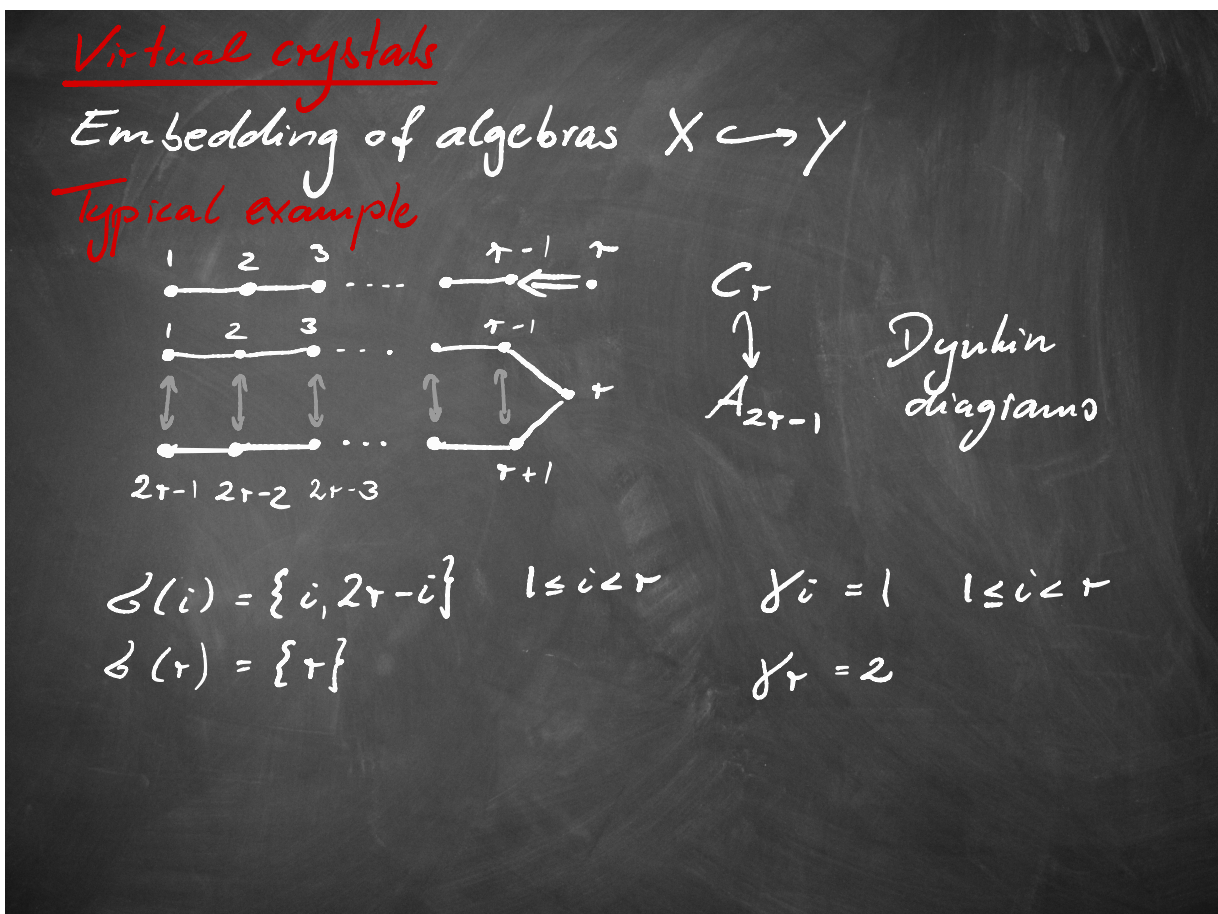 Virtual crystals
Embedding of algebras X ↪ Y
Typical example
1 2 3 .... r-1 r
C_r
1 2 3 ... . r-1
↪
Dynkin
r
A_{2r-1}
diagrams
...
r+1
2r-1 2r-2 2r-3
σ(i) = {i, 2r-i} 1≤i<r γi = 1 1≤i<r
σ(r) = {r} γr = 2